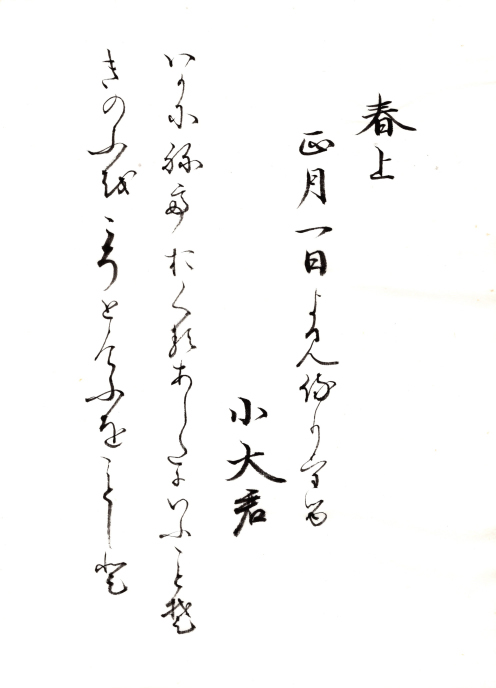 春上
正月一日よみ侍りける
小大君
いかに祢ておくるあしたにいふことぞ
きのふをこぞとけふをことしと